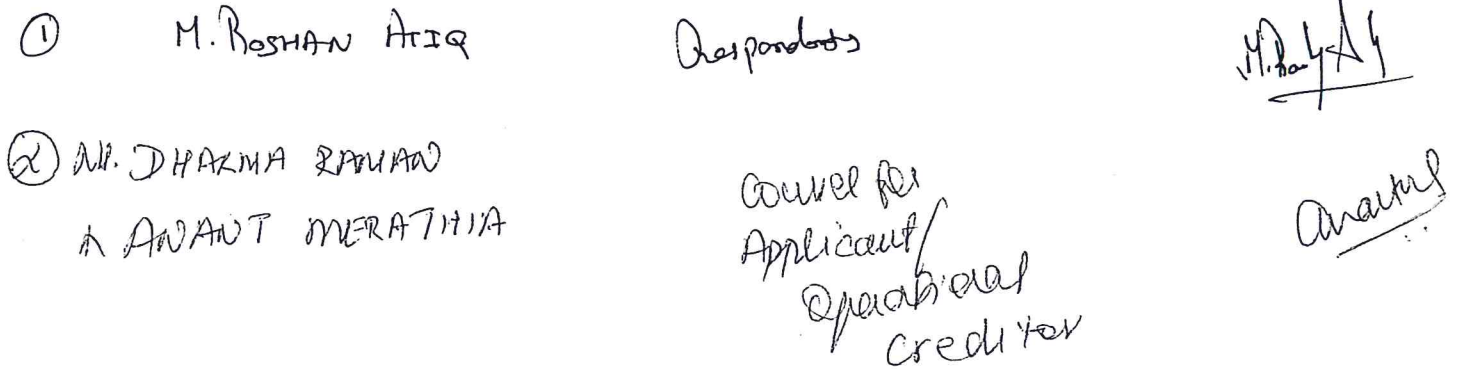 ① M. ROSHAN ATIQ Respondents
② DHARMA RAMAN
& ANANT MERATHIA
Counsel for
Applicant/
Operational
Creditor